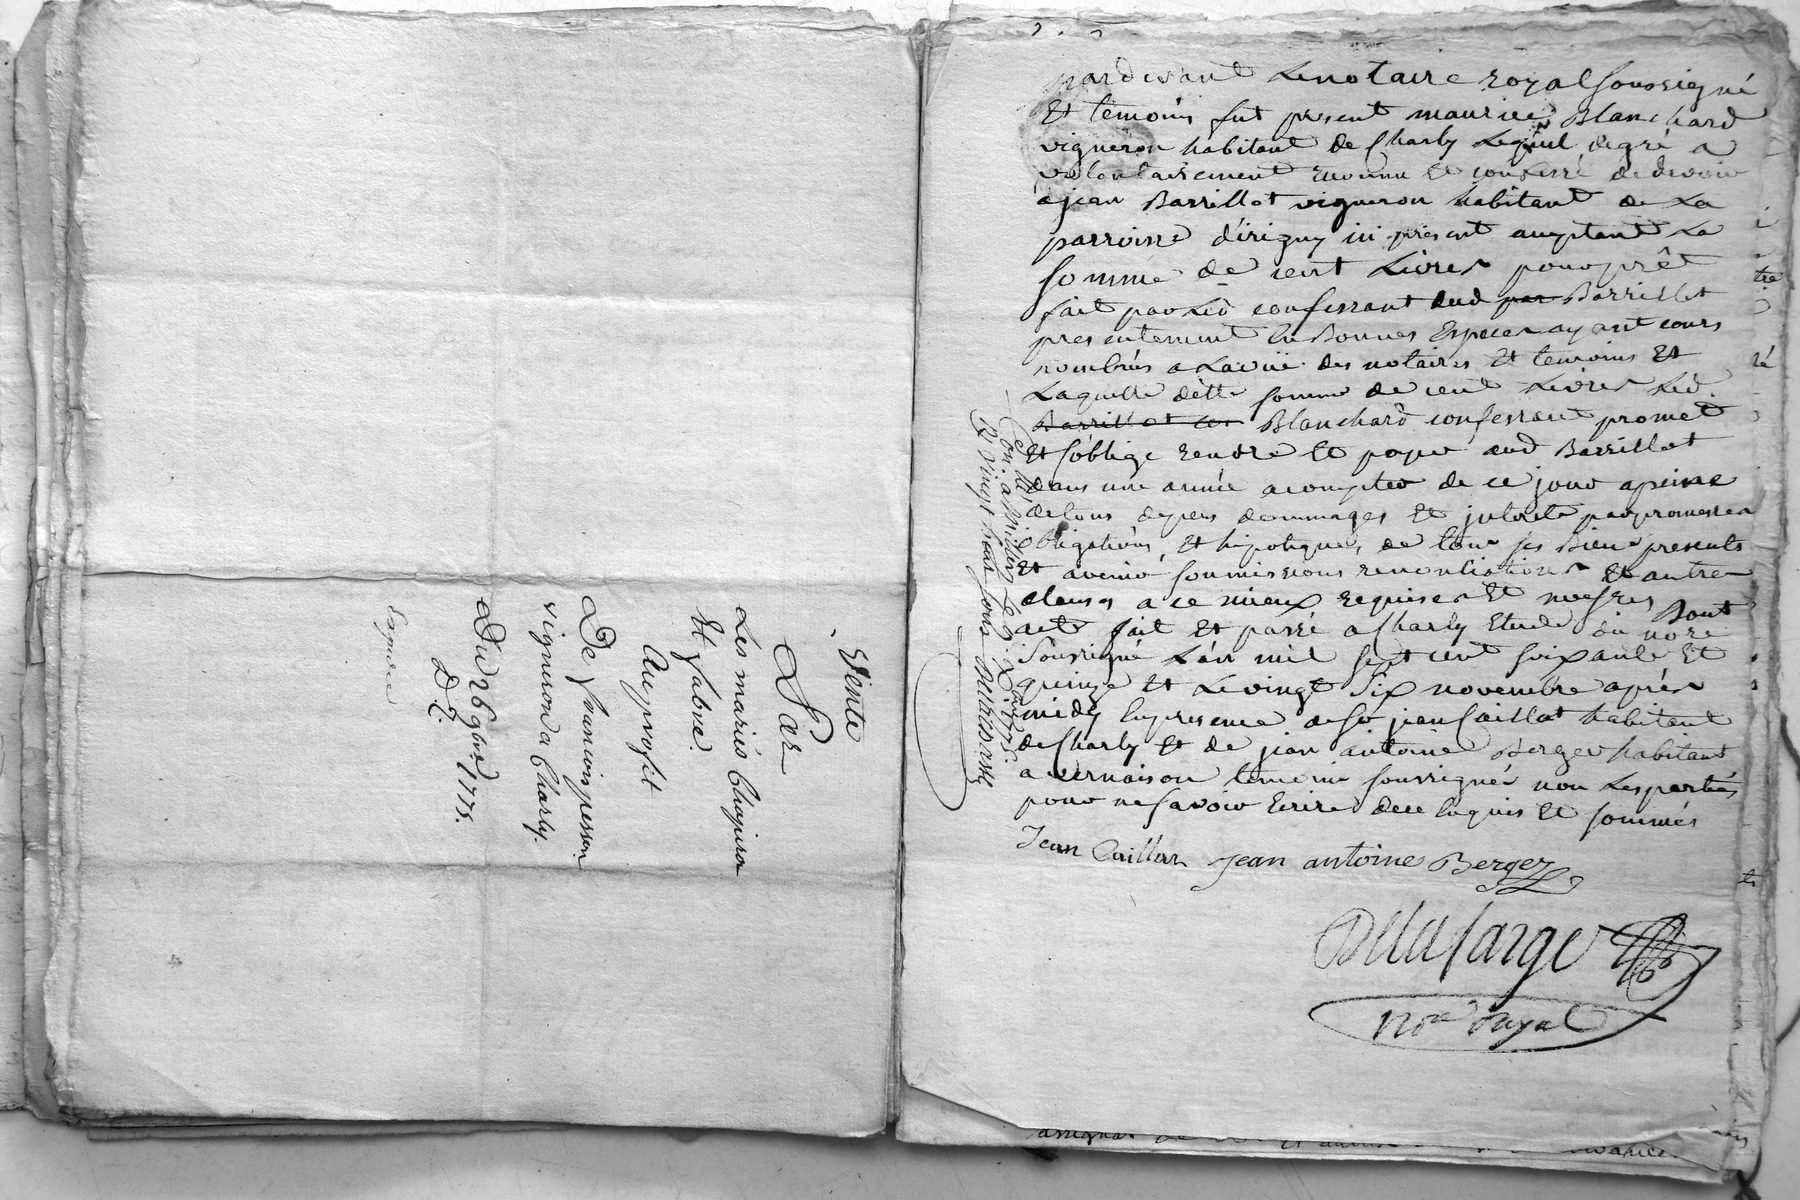 Vente
Par
Les mariés Chapiron
Et fabvre.
Au profit
De francois persson
vigneron a Charly.
Du 26 9bre 1775.
D.L.
pardevant Lenotaire royal soussigné
Et temoins fut present maurice Blanchard
vigneron habitant de Charly Lequel degré a
volontairement reconnu Et confessé de devoir
a jean Barrillot vigneron habitant de La
parroisse d'irigny ici present acceptant La
somme de cent Livres pour prêt
fait par Led confessant aud par Barrillot
presentement En Bonnes Especes ayant cours
nombrés a La vüe des notaires Et temoins Et
Laquelle ditte somme de cent Livres Led.
Barrillot con Blanchard confessant promet
Et s'oblige rendre Et payer aud Barrillot
dans une année acompter de ce jour apeine
de tous depens dommages Et interets par promesses
obligations, Et hipoteques, de tous ses Biens presents
Et avenir soumissions renonciations Et autres
clauses a ce mieux requises Et necessres Dont
acte fait Et passé a Charly Etude du nore
soussigné L'an mil sept cent soixante Et
quinze Et Le vingt six novembre après
midy En presence de sr jean Caillot habitant
de Charly Et de jean antoine Berger habitant
a vernaison temoins soussignés non Les parties
pour ne savoir Ecrire de ce Enquis Et sommés
Jean Caillot Jean antoine Berger
Delafarge
Nore Royal
Con. a Millery Le
R vingt huit sous